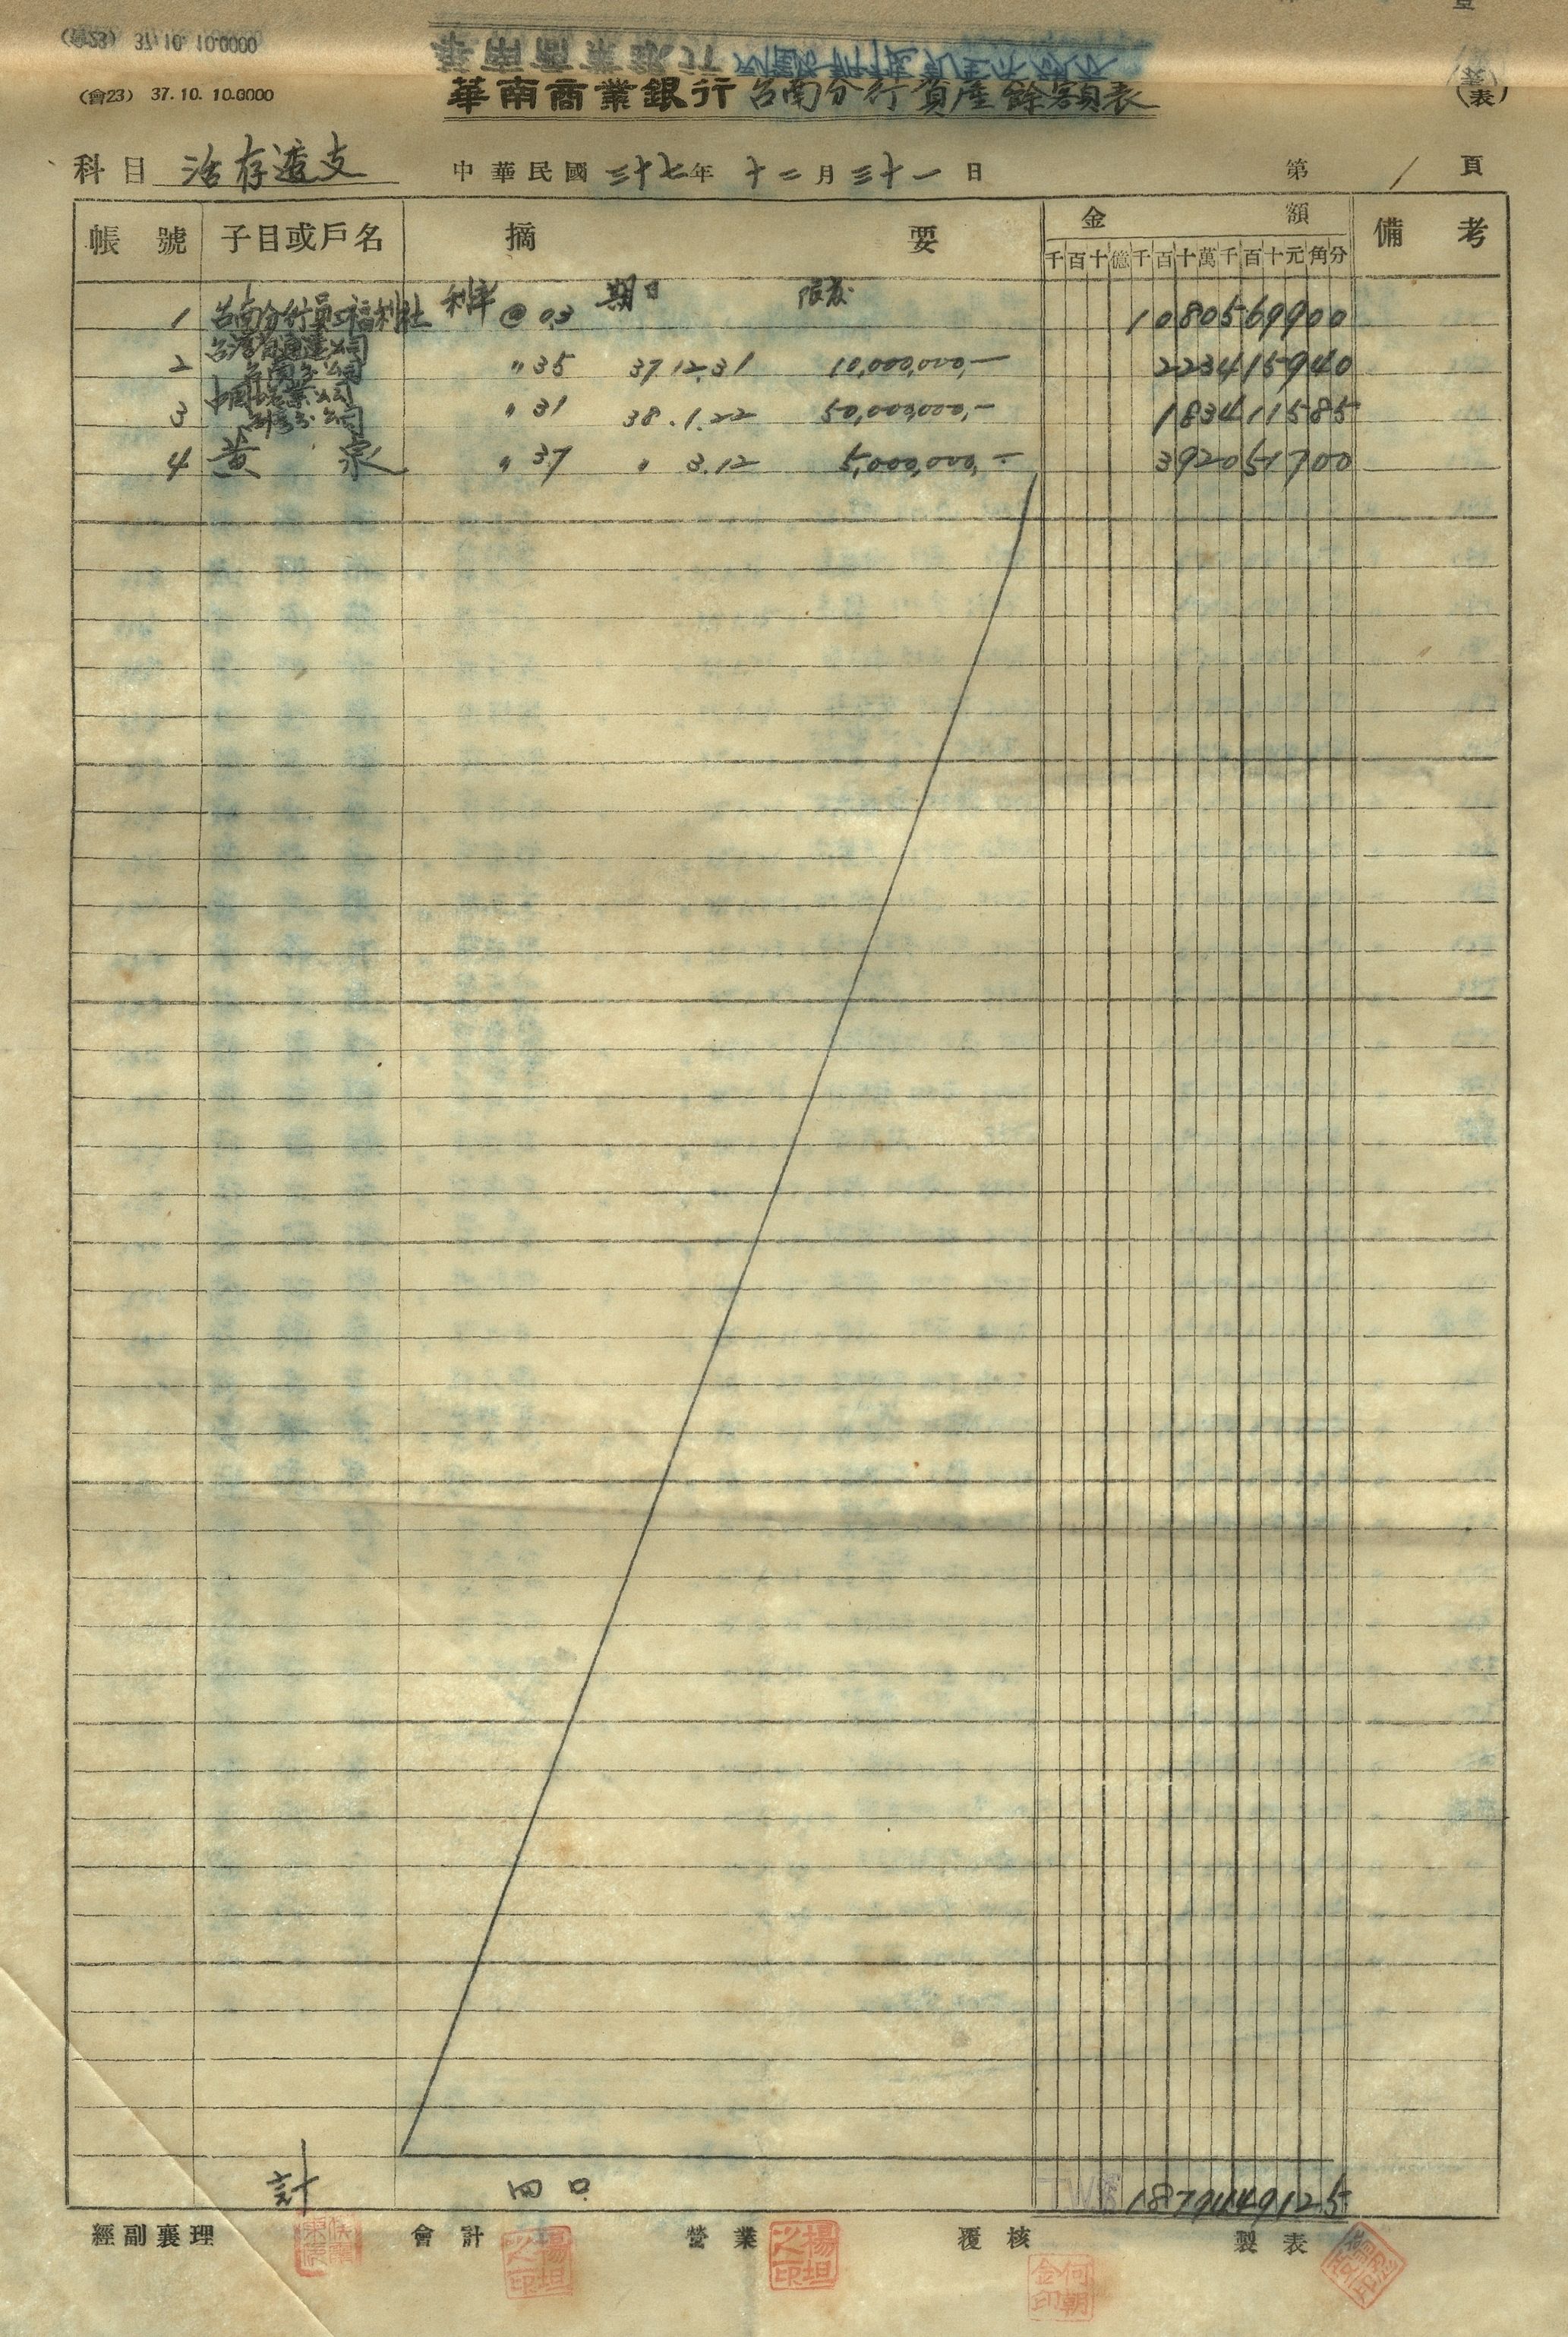 (會23) 37.10. 10.0000
華南商業銀行台南分行資產餘額表
(表)
科目 活存透支 中華民國三十七年 十二月三十一日 第 1 頁
帳號 子目或戶名 摘要 金額 備考
千百十億千百十萬千百十元角分
利率 期日 限度
1 台南分行員工福利社 @ 0.3 1080569900
台灣省通運公司
2 台南分公司 〃 35 37.12.31 10,000,000.— 223415940
中國鹽業公司
3 台灣分公司 〃 31 38.1.22 50,000,000.— 183411585
4 黃 泉 〃 37 〃 3.12 5,000,000.— 392051700
計 四口 1879449125
經副襄理 會計 營業 覆核 製表
楊坦之印 楊坦之印 何朝金印